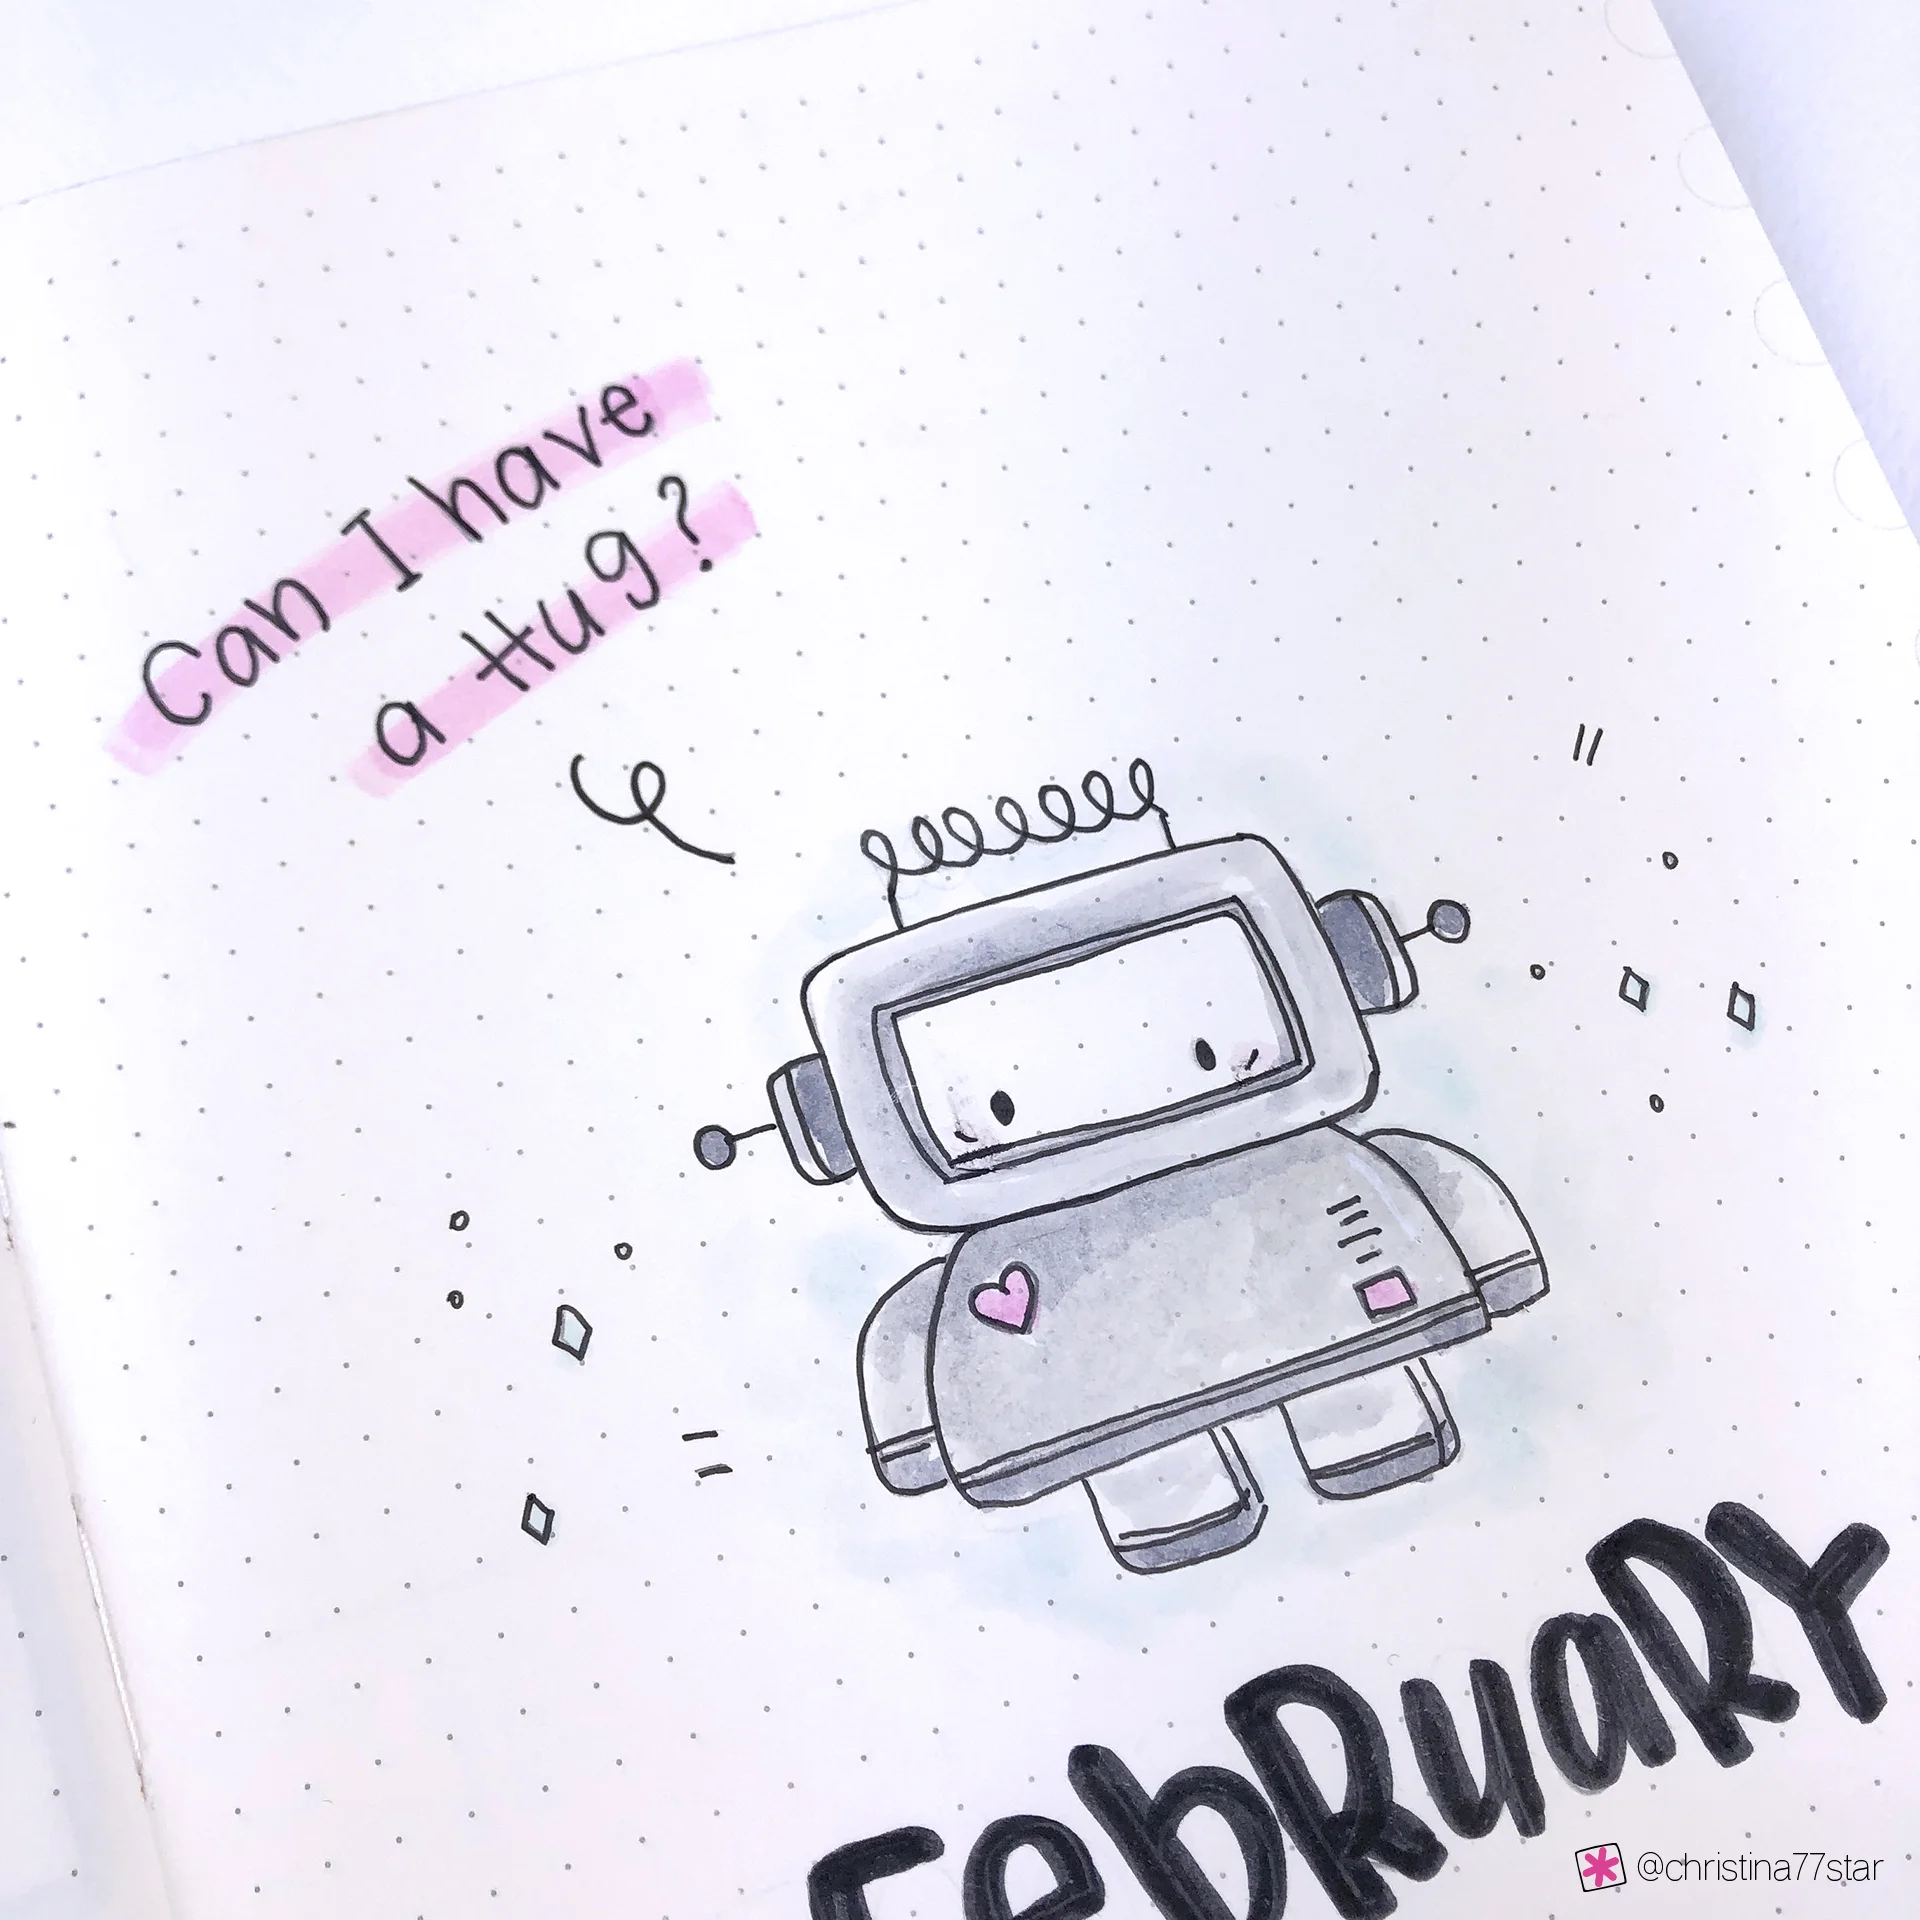 Can I have
a Hug?
FebRuaRY
@christina77star